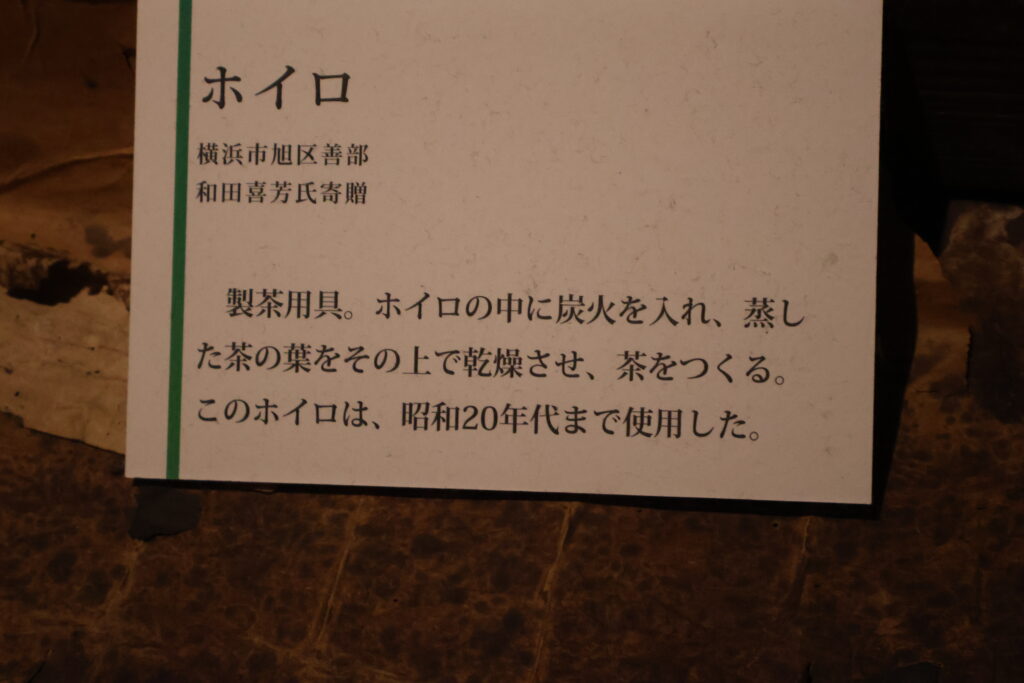 ホイロ
横浜市旭区善部
和田喜芳氏寄贈
製茶用具。ホイロの中に炭火を入れ、蒸し
た茶の葉をその上で乾燥させ、茶をつくる。
このホイロは、昭和20年代まで使用した。